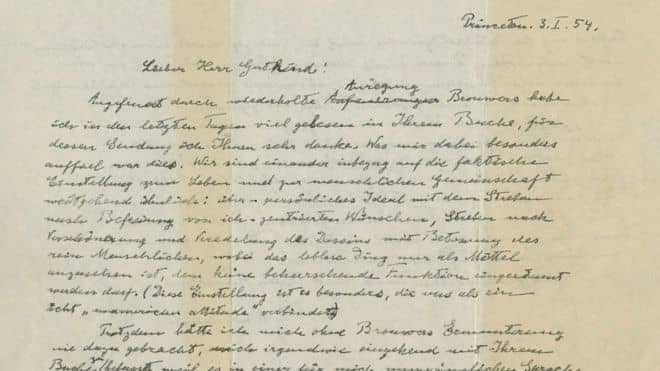 Princeton. 3. I. 54.
Lieber Herr Gutkind!
Anregung
Angefeuert durch wiederholte Brouwers habe
ich in den letzten Tagen viel gelesen in Ihrem Buche, für
dessen Sendung ich Ihnen sehr danke. Was mir dabei besonders
auffiel war dies. Wir sind einander inbezug auf die faktische
Einstellung zum Leben und zur menschlichen Gemeinschaft
weitgehend ähnlich: über-persönliches Ideal mit dem Streben
nach Befreiung von ich-zentrierten Wünschen, Streben nach
Verschönerung und Veredelung des Daseins mit Betonung des
rein Menschlichen, wobei das leblose Ding nur als Mittel
anzusehen ist, dem keine beherrschende Funktion eingeräumt
werden darf. (Diese Einstellung ist es besonders, die uns als ein
echt "unamerican attitude" verbindet)
Trotzdem hätte ich mich ohne Brouwers Ermunterung
nie dazu gebracht, mich irgendwie eingehend mit Ihrem
Buche zu befassen weil es in einer für mich unzugänglichen Sprache